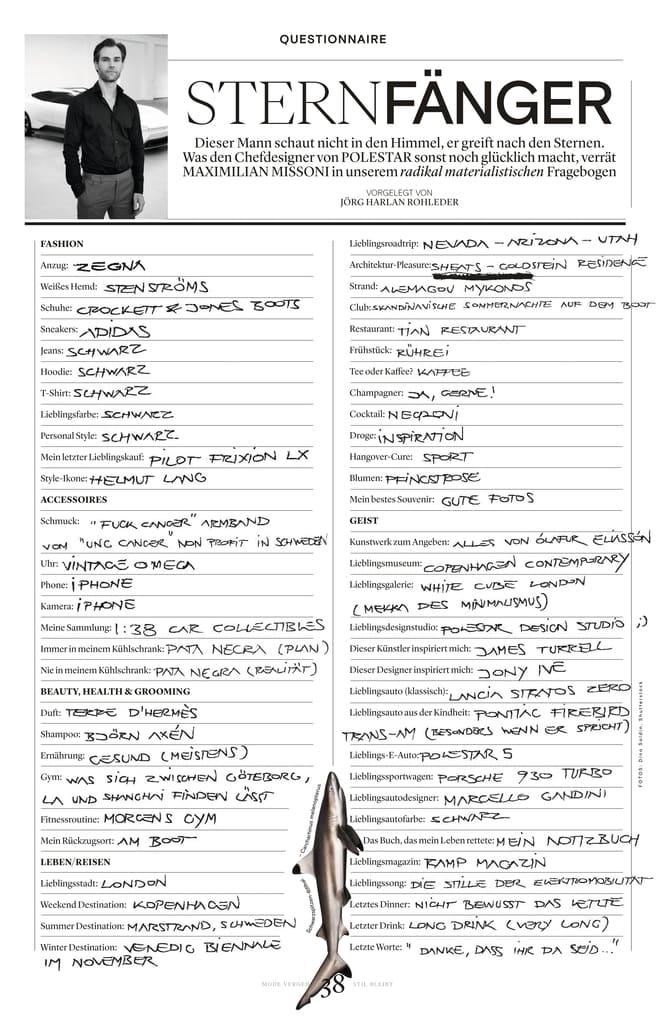 QUESTIONNAIRE
STERNFÄNGER
Dieser Mann schaut nicht in den Himmel, er greift nach den Sternen.
Was den Chefdesigner von POLESTAR sonst noch glücklich macht, verrät
MAXIMILIAN MISSONI in unserem radikal materialistischen Fragebogen
VORGELEGT VON
JÖRG HARLAN ROHLEDER
FASHION
Anzug: ZEGNA
Weißes Hemd: STENSTRÖMS
Schuhe: CROCKETT & JONES BOOTS
Sneakers: ADIDAS
Jeans: SCHWARZ
Hoodie: SCHWARZ
T-Shirt: SCHWARZ
Lieblingsfarbe: SCHWARZ
Personal Style: SCHWARZ
Mein letzter Lieblingskauf: PILOT FRIXION LX
Style-Ikone: HELMUT LANG
ACCESSOIRES
Schmuck: "FUCK CANCER" ARMBAND
VOM "UNG CANCER" NON PROFIT IN SCHWEDEN
Uhr: VINTAGE OMEGA
Phone: iPHONE
Kamera: iPHONE
Meine Sammlung: 1:38 CAR COLLECTIBLES
Immer in meinem Kühlschrank: PATA NEGRA (PLAN)
Nie in meinem Kühlschrank: PATA NEGRA (REALITÄT)
BEAUTY, HEALTH & GROOMING
Duft: TERRE D'HERMÈS
Shampoo: BJÖRN AXÉN
Ernährung: GESUND (MEISTENS)
Gym: WAS SICH ZWISCHEN GÖTEBORG,
LA UND SHANGHAI FINDEN LÄSST
Fitnessroutine: MORGENS GYM
Mein Rückzugsort: AM BOOT
LEBEN/REISEN
Lieblingsstadt: LONDON
Weekend Destination: KOPENHAGEN
Summer Destination: MARSTRAND, SCHWEDEN
Winter Destination: VENEDIG BIENNALE
IM NOVEMBER
Lieblingsroadtrip: NEVADA – ARIZONA – UTAH
Architektur-Pleasure: SHEATS – GOLDSTEIN RESIDENCE
Strand: ALEMAGOU MYKONOS
Club: SKANDINAVISCHE SOMMERNÄCHTE AUF DEM BOOT
Restaurant: TIAN RESTAURANT
Frühstück: RÜHREI
Tee oder Kaffee? KAFFEE
Champagner: JA, GERNE!
Cocktail: NEGRONI
Droge: INSPIRATION
Hangover-Cure: SPORT
Blumen: PFINGSTROSE
Mein bestes Souvenir: GUTE FOTOS
GEIST
Kunstwerk zum Angeben: ALLES VON ÓLAFUR ELIASSÓN
Lieblingsmuseum: COPENHAGEN CONTEMPORARY
Lieblingsgalerie: WHITE CUBE LONDON
(MEKKA DES MINIMALISMUS)
Lieblingsdesignstudio: POLESTAR DESIGN STUDIO ;)
Dieser Künstler inspiriert mich: JAMES TURRELL
Dieser Designer inspiriert mich: JONY IVE
Lieblingsauto (klassisch): LANCIA STRATOS ZERO
Lieblingsauto aus der Kindheit: PONTIAC FIREBIRD
TRANS-AM (BESONDERS WENN ER SPRICHT)
Lieblings-E-Auto: POLESTAR 5
Lieblingssportwagen: PORSCHE 930 TURBO
Lieblingsautodesigner: MARCELLO GANDINI
Lieblingsautofarbe: SCHWARZ
Das Buch, das mein Leben rettete: MEIN NOTIZBUCH
Lieblingsmagazin: RAMP MAGAZIN
Lieblingssong: DIE STILLE DER ELEKTROMOBILITÄT
Letztes Dinner: NICHT BEWUSST DAS LETZTE
Letzter Drink: LONG DRINK (VERY LONG)
Letzte Worte: "DANKE, DASS IHR DA SEID..."
Carcharhinus melanopterus
Schwarzspitzen-
FOTOS: Dino Soldin, Shutterstock
MODE VERGEHT 38 STIL BLEIBT